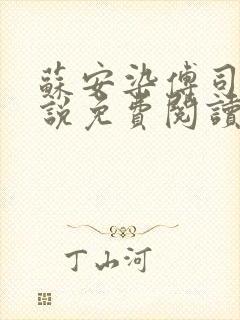 蘇安染傅司
說免費閱讀
丁山河